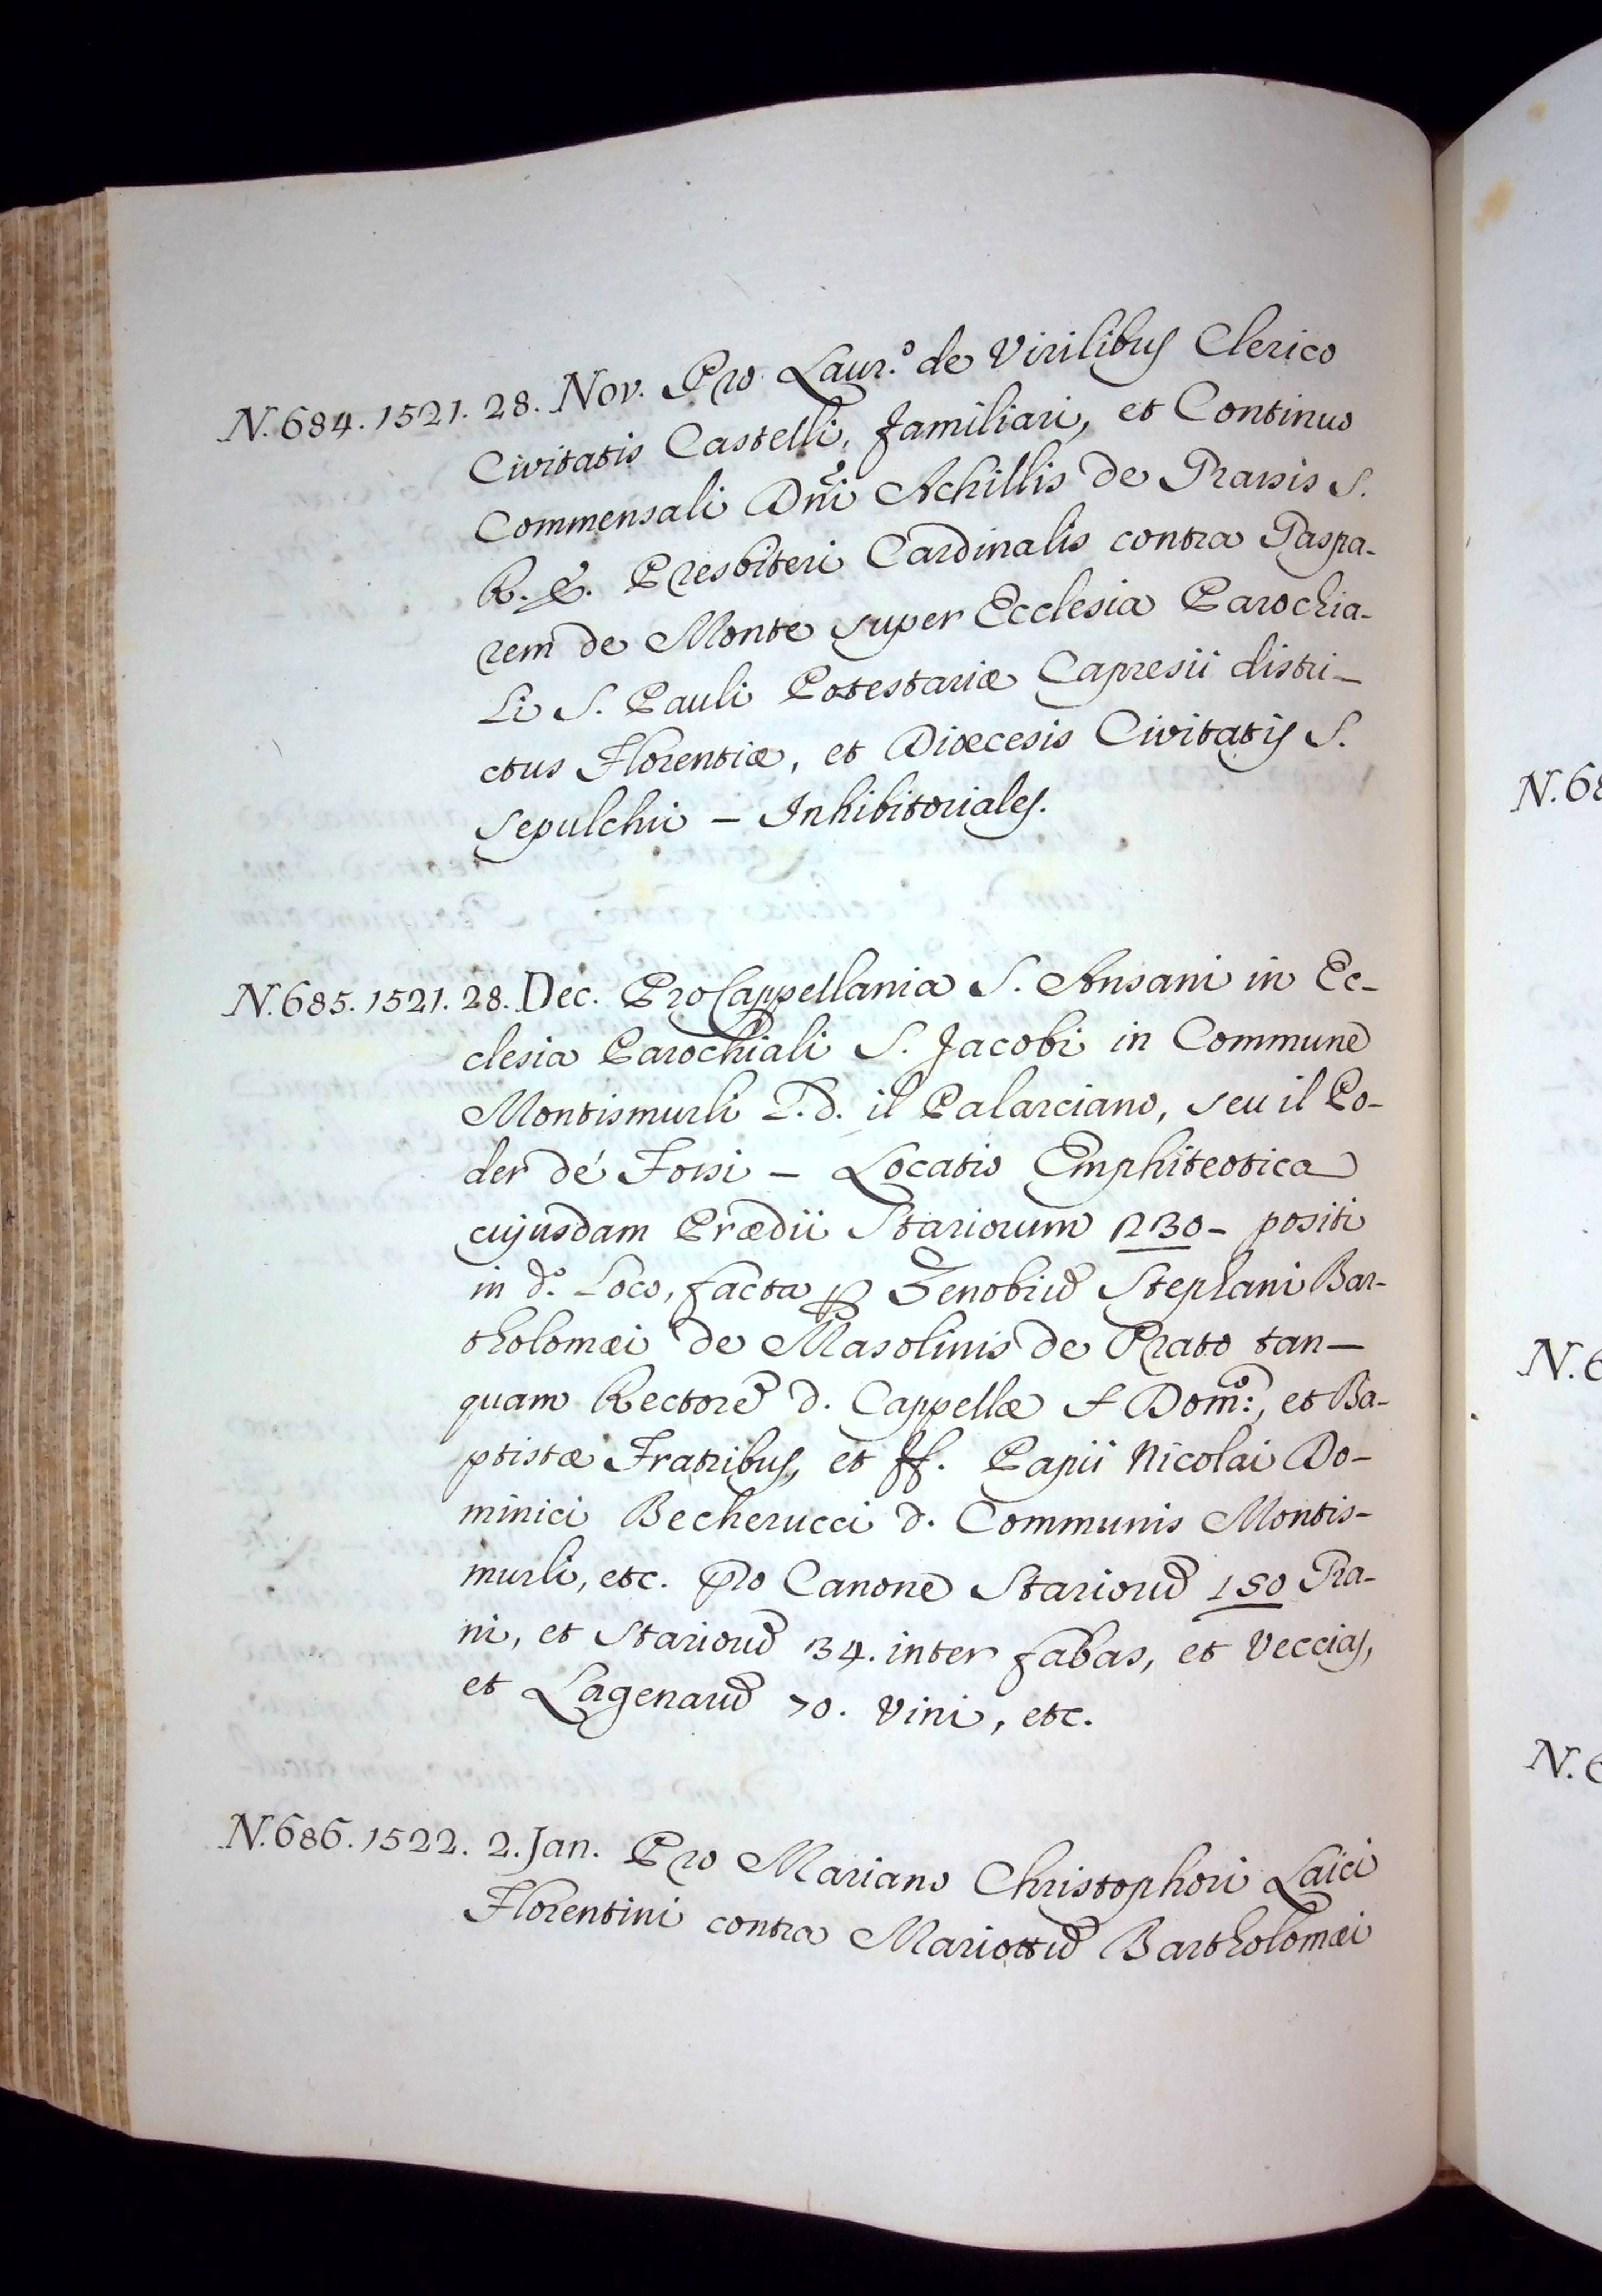 N. 684. 1521. 28. Nov. Pro Laur.º de Virilibus Clerico
Civitatis Castelli, familiari, et Continuo
Commensali Dñi Achillis de Grassis S.
R. E. Presbiteri Cardinalis contra Gaspa-
rem de Monte super Ecclesia Parochia-
li S. Pauli Potestariæ Capresii distri-
ctus Florentiæ, et Diœcesis Civitatis S.
Sepulchri - Inhibitoriales.
N. 685. 1521. 28. Dec. Pro Cappellania S. Ansani in Ec-
clesia Parochiali S. Jacobi in Commune
Montismurli L. d. il Palarciano, seu il Po-
der dé Forsi - Locatio Emphiteotica
cujusdam Prædii Stariorum 1230 - positi
in d.º Loco, facta p Zenobiũ Stephani Bar-
tholomæi de Masolinis de Prato tan-
quam Rectorẽ d. Cappellæ S Dom.º:, et Ba-
ptistæ Fratribus, et ff. Papii Nicolai Do-
minici Becherucci d. Communis Montis-
murli, etc. pro Canone Stariorũ 150 Gra-
ni, et Stariorũ 34. inter fabas, et Veccias,
et Lagenarũ 70. Vini, etc.
N. 686. 1522. 2. Jan. Pro Mariano Christophori Laici
Florentini contra Mariottũ Bartholomæi
N. 68
N. 6
N. 6